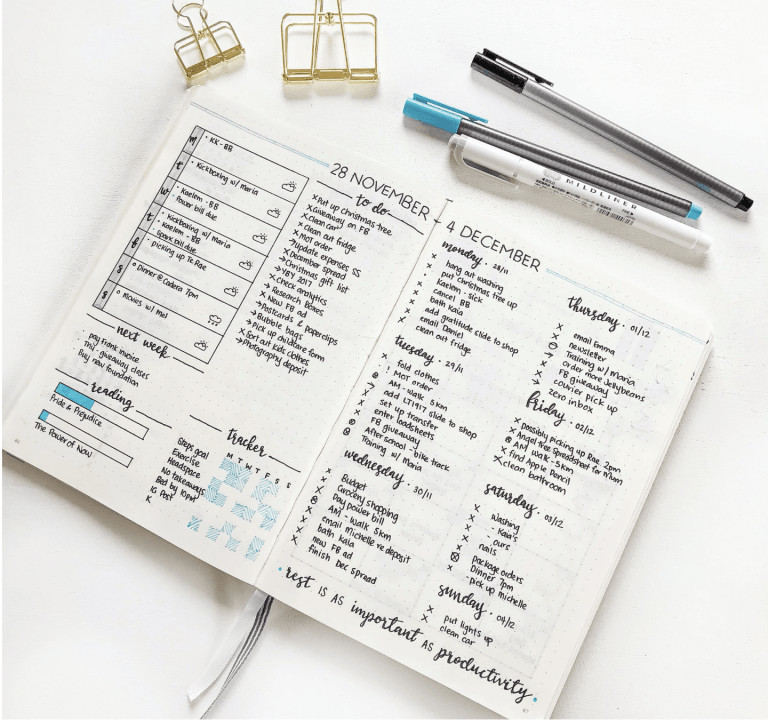 28 NOVEMBER -
M • KK - BB
T • Kickboxing w/ Maria
W • Kaelem - BB
• Power bill due
T • Kickboxing w/ Maria
• Kaelem - BB
Spark bill due
F - picking up Te Rae
S ○ Dinner @ Cadera 7pm
S ○ Movies w/ Mel
next week
• pay frank invoice
TN1 giveaway closes
Buy new foundation
reading
Pride & Prejudice
The Power of Now
to do
× Put up christmas tree
× Giveaway on FB
× Clean car
× Clean out fridge
× MOT order
→ Update expenses SS
× December spread
→ Christmas gift list
→ YBY 2017
× Check analytics
→ Research Boxes
× New FB ad
→ Postcards & paperclips
→ Bubble bags
× Pick up childcare form
× Sort out kids clothes
→ Photography deposit
tracker
M T W T F S S
Steps goal
Exercise
Headspace
No takeaways
Bed by 10pm
IG Post
K
4 DECEMBER
monday • 28/11
× hang out washing
× put christmas tree up
× Kaelem - sick
× cancel BB
× bath kaia
× add gratitude slide to shop
× email Daniel
× clean out fridge
tuesday • 29/11
× fold clothes
! MOT order
AM - walk 5km
→ add LT1917 slide to shop
× set up transfer
× enter loadsheets
× FB giveaway
After school - bike track
Training w/ Maria
wednesday • 30/11
× Budget
× Grocery shopping
× Pay power bill
AM - walk 5km
× email michelle re deposit
× bath kaia
× new FB ad
× finish Dec spread
thursday • 01/12
× email Emma
× newsletter
Training w/ Maria
→ order more Jellybeans
× FB giveaway
× courier pick up
→ zero inbox
friday • 02/12
× possibly picking up Rae 2pm
× Angel tree Spreadsheet for Mum
AM walk - 5km
× find Apple Pencil
× clean bathroom
saturday • 03/12
× Washing
× - Kaia's
× - ours
× nails
package orders
× Dinner 7pm
× - pick up michelle
sunday • 04/12
× put lights up
× clean car
• rest IS AS important AS productivity •
47
MILDLINER